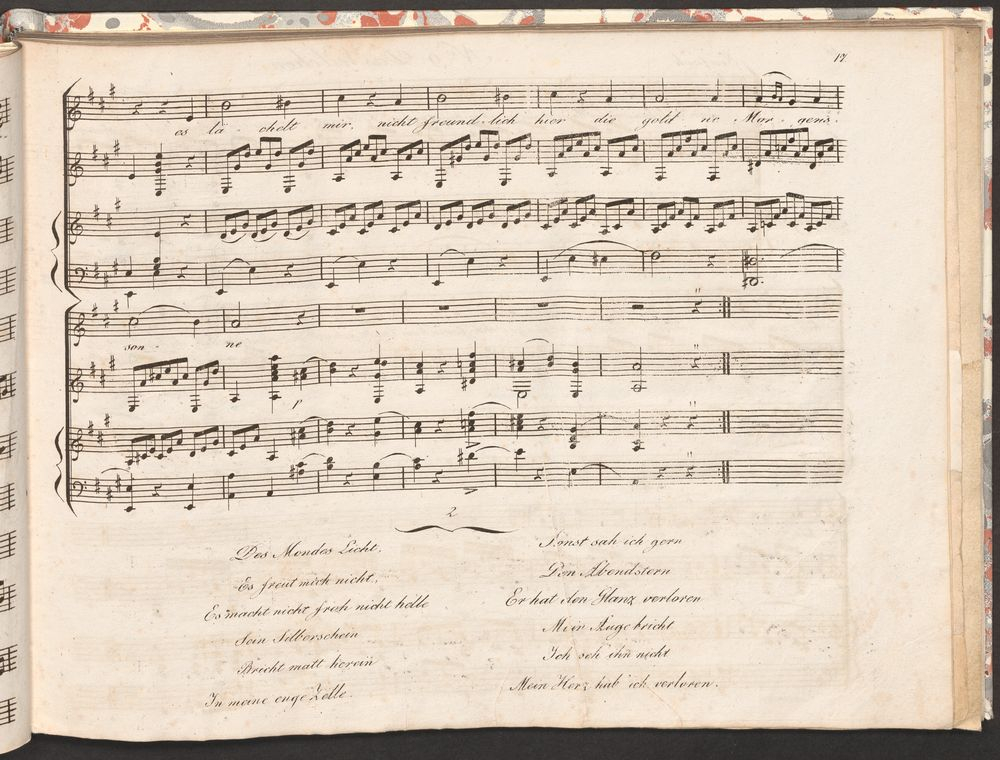 17
es lä - chelt mir, nicht freund - lich hier die gold ne Mor - gens -
son - ne
p
2
Des Mondes Licht,
Es freut mich nicht,
Es macht nicht froh nicht helle
Sein Silberschein
Bricht matt herein
In meine enge Zelle.
Sonst sah ich gern
Den Abendstern
Er hat den Glanz verloren
Mein Auge bricht
Ich seh ihn nicht
Mein Herz hab ich verloren.